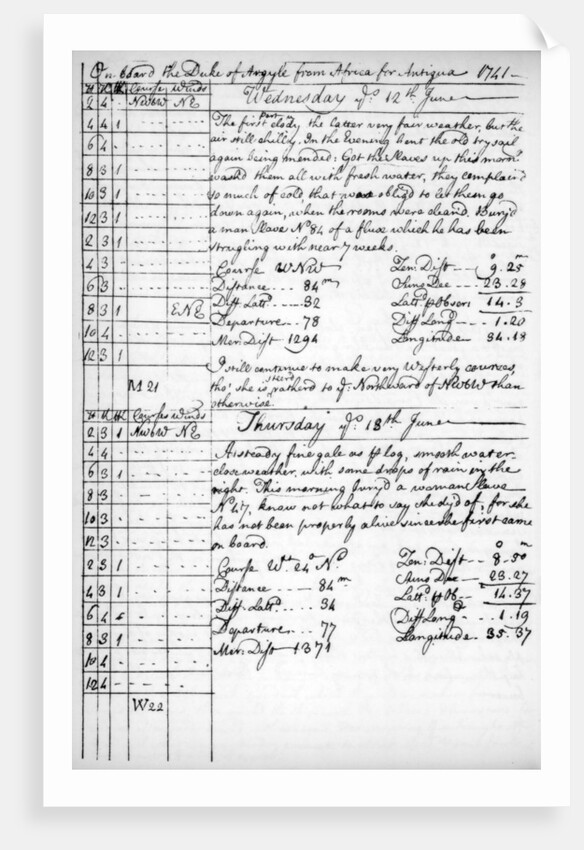 On board the Duke of Argyle from Africa for Antigua 1741
H K HK Courses Winds
Wednesday ye. 12th June
2 4 . NWbW NE
4 4 1
6 4 .
8 3 1
10 3 1
12 3 1
2 3 1
4 3 .
6 3 .
8 3 1 ENE
10 4 .
12 3 1
M 21
The first part clody the latter very fair weather, but the
air still chilly. In the Evening bent the old try sail
again being mended: Got the Slaves up this morn
wash'd them all with fresh water, they complain'd
so much of cold, that was oblig'd to let them go
down again, when the rooms were cleand. Bury'd
a man Slave No 84 of a flux which he has been
strugling with near 7 weeks.
Course WNW
Distance --- 84m
Diff Latt. --- 32
Departure --- 78
Mer: Dist 1294
o m
Zen: Dist -- 9.25
Suns Dec --- 23.28
Lattd. Obser: 14.3
Diff Long --- 1.20
Longitude --- 34.18
I still continue to make very Westerly courses,
tho' she is steerd rather to ye: Northward of NWbW than
otherwise.
H K HK Courses Winds
Thursday ye. 13th June
2 3 1 NWbW NE
4 4 .
6 3 1
8 3 .
10 3 .
12 3 .
2 3 1
4 3 1
6 4 .
8 3 1
10 4 .
12 4 .
W22
A steady fine gale as log, smooth water
close weather, with some drops of rain in the
night. This morning bury'd a woman Slave
No 47, know not what to say she dy'd of, for she
has not been properly alive since she first came
on board.
Course Wt. 24o No.
Distance --- 84m
Diff: Lattd. --- 34
Departure --- 77
Mer: Dist 1371
o m
Zen: Dist -- 8.50
Suns Dec -- 23.27
Lattd. Ob -- 14.37
Diff Long -- 1.19
Longitude -- 35.37